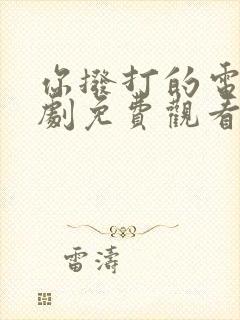 你撥打的電
劇免費觀看
雷濤